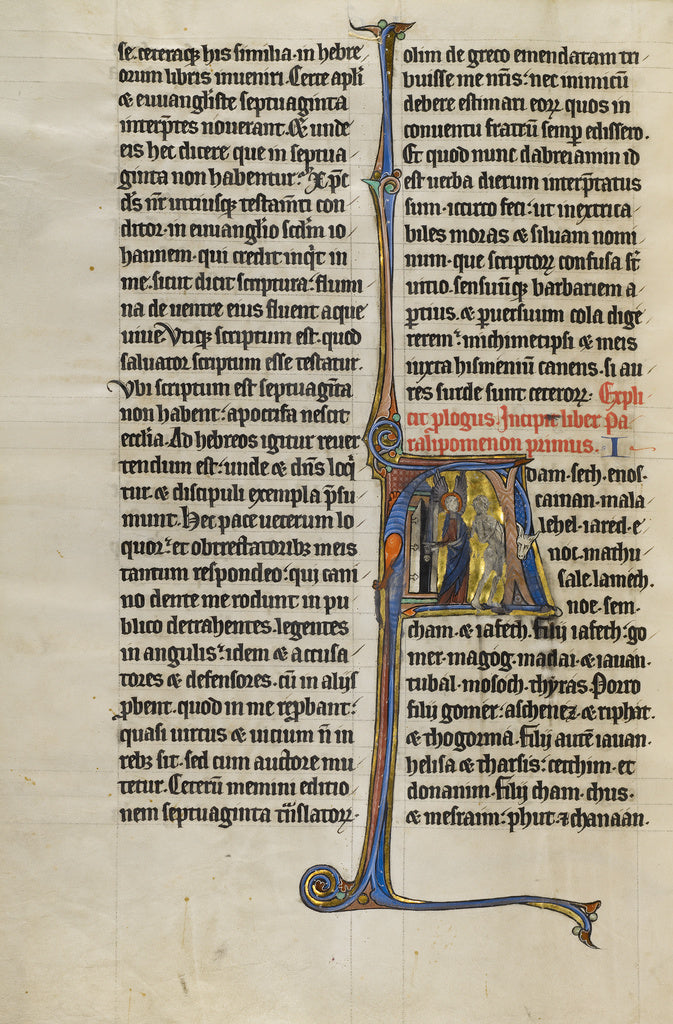 se. ceteraq; his similia. in hebre
orum libris inveniri. Certe apli
& euuangliste septuaginta
interptes nouerant. & unde
eis hec dicere que in septua
ginta non habentur? Xpc
ds nr utriusq; testamti con
ditor. in euuanglio scdm io
hannem. qui credit inqt in
me. sicut dicit scriptura: flumi
na de uentre eius fluent aque
uiue. Vtiq; scriptum est. quod
saluator scriptum esse testatur.
Vbi scriptum est septuagita
non habent: apocrifa nescit
ecclia. Ad hebreos igitur reuer
tendum est: unde & dns loq
tur. & discipuli exempla psu
munt. Hec pace ueterum lo
quor: et obtrectatorib; meis
tantum respondeo: qui cani
no dente me rodunt in pu
blico detrahentes. legentes
in angulis: idem & accusa
tores & defensores. cu in aliis
pbent. quod in me repbant:
quasi uirtus & uicium n in
reb; sit. sed cum auctore mu
tetur. Ceteru memini editio
nem septuaginta tnslatorz.
olim de greco emendatam tri
buisse me nris: nec inimicu
debere estimari eorz quos in
conuentu fratru semp edissero.
Et quod nunc dabreiamin id
est uerba dierum interptatus
sum. iccirco feci: ut inextrica
biles moras & siluam nomi
num. que scriptorz confusa st
uitio. sensuuq; barbariem a
ptius. & puersuum cola dige
rerem: michimetipsi & meis
iuxta hismeniu canens. si au
res surde sunt ceterorz. Expli
cit plogus. Incipit liber Pa
ralipomenon primus. I
Adam. seth. enos.
cainan. mala
lehel. iared. e
noc. mathu
sale. lamech.
noe. sem.
cham. & iafeth. Filii iafeth: go
mer. magog. madai. & iauan.
tubal. mosoch. thyras. Porro
filii gomer: aschenez. & riphat.
& thogorma. Filii aute iauan.
helisa & tharsis: cecthim. et
donanim. Filii cham. chus.
& mesraim: phut. & chanaan.